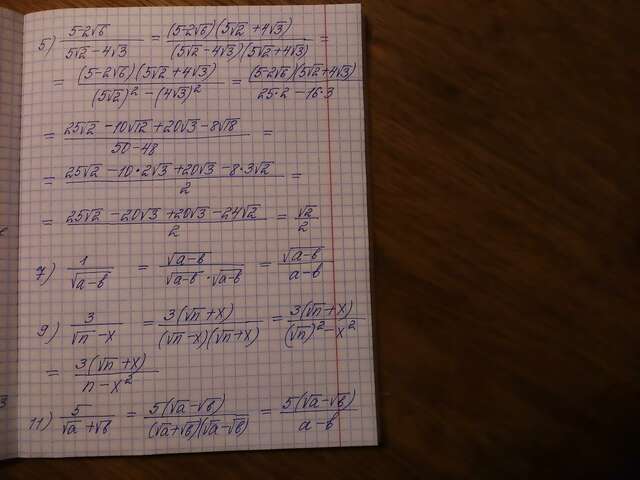 5) (5-2√6)/(5√2-4√3) = ((5-2√6)(5√2+4√3))/((5√2-4√3)(5√2+4√3)) =
= ((5-2√6)(5√2+4√3))/((5√2)²-(4√3)²) = ((5-2√6)(5√2+4√3))/(25·2-16·3)
= (25√2-10√12+20√3-8√18)/(50-48) =
= (25√2-10·2√3+20√3-8·3√2)/2 =
= (25√2-20√3+20√3-24√2)/2 = √2/2
7) 1/√(a-b) = √(a-b)/(√(a-b)·√(a-b)) = √(a-b)/(a-b)
9) 3/(√n-x) = 3(√n+x)/((√n-x)(√n+x)) = 3(√n+x)/((√n)²-x²)
= 3(√n+x)/(n-x²)
11) 5/(√a+√b) = 5(√a-√b)/((√a+√b)(√a-√b)) = 5(√a-√b)/(a-b)